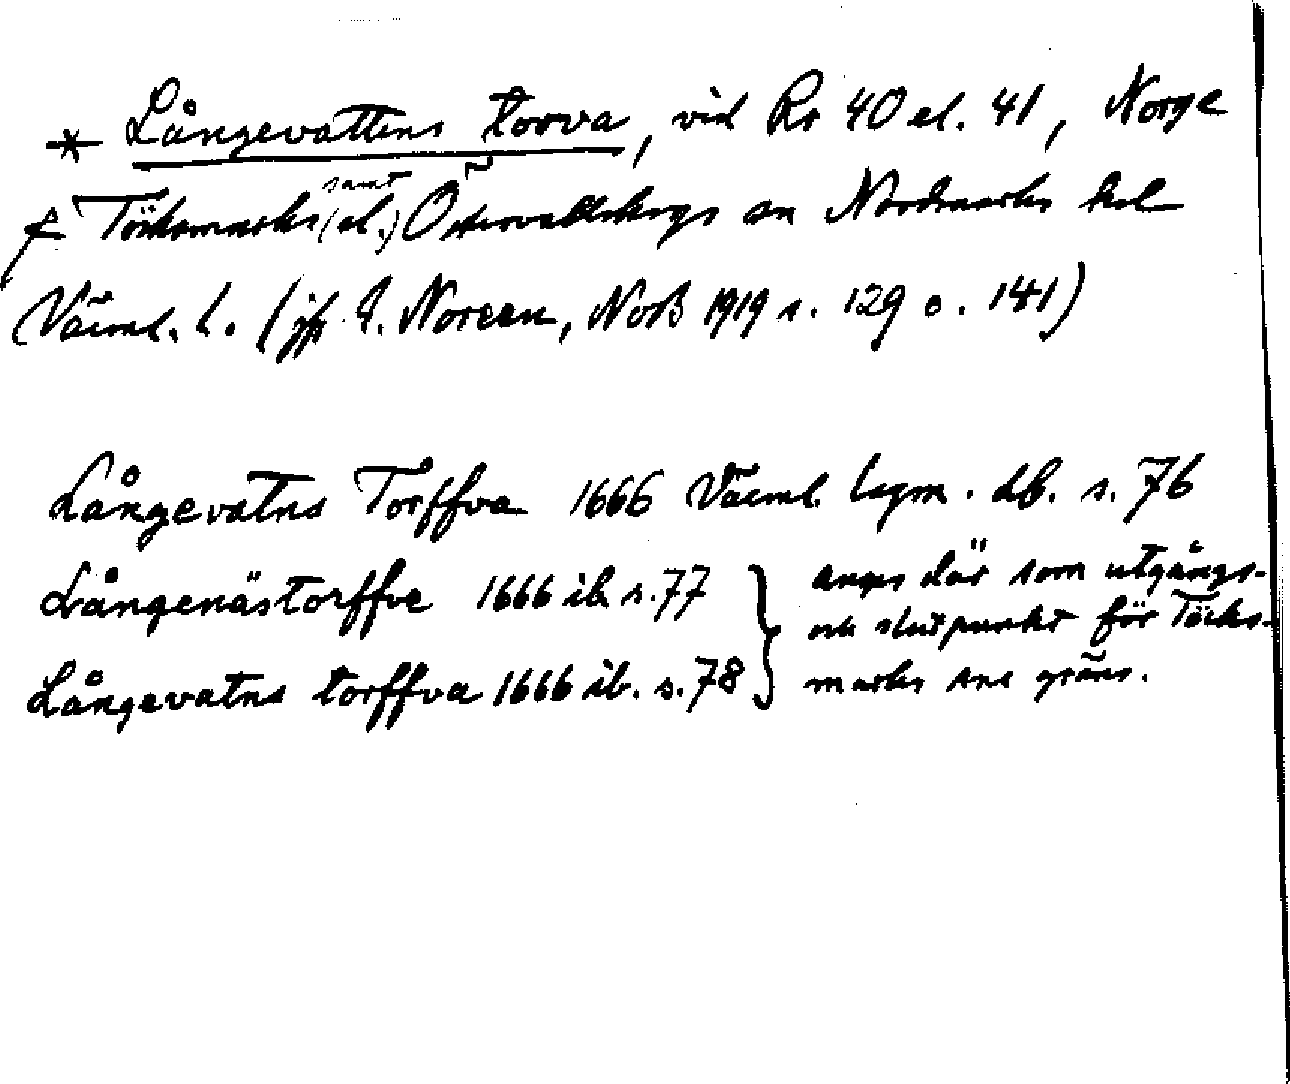 * Långevattens torva, vid Rr 40 el. 41, Norge
f Töcksmarks (el.) samt Östervallskogs sn Nordmarks hd
Värml. l. (jfr E. Noreen, NoB 1919 s. 129 o. 141)
Långevatns Torffva 1666 Värml. lagm. db. s. 76
Långenästorffve 1666 ib. s. 77 } anges där som utgångs-
och slutpunkt för Töcks-
Långevatns torffva 1666 ib. s. 78 } marks sns gräns.